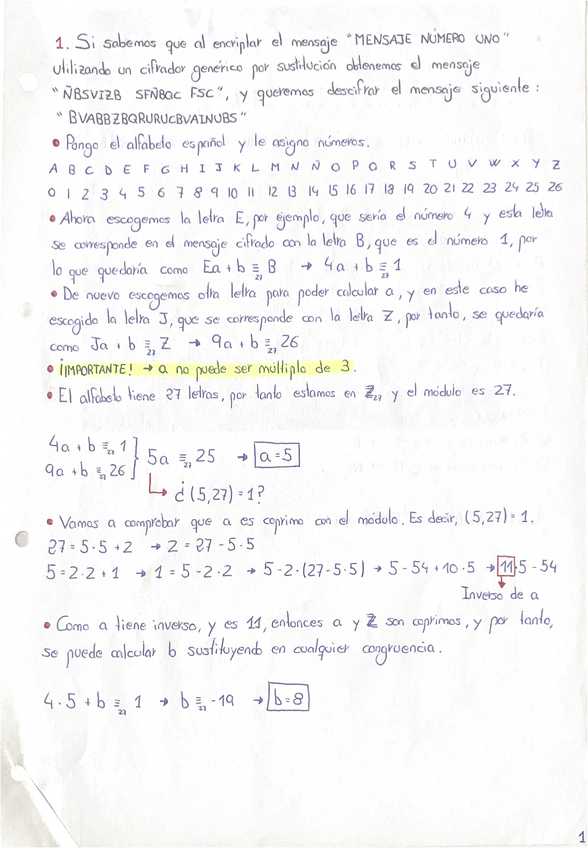 1. Si sabemos que al encriptar el mensaje "MENSAJE NÚMERO UNO"
utilizando un cifrador genérico por sustitución obtenemos el mensaje
"ÑBSVIZB SFÑBQC FSC", y queremos descifrar el mensaje siguiente:
"BVABBZBQRURUCBVAINUBS"
• Pongo el alfabeto español y le asigno números.
A B C D E F G H I J K L M N Ñ O P Q R S T U V W X Y Z
0 1 2 3 4 5 6 7 8 9 10 11 12 13 14 15 16 17 18 19 20 21 22 23 24 25 26
• Ahora escogemos la letra E, por ejemplo, que sería el número 4 y esta letra
se corresponde en el mensaje cifrado con la letra B, que es el número 1, por
lo que quedaría como Ea + b ≡₂₇ B → 4a + b ≡₂₇ 1
• De nuevo escogemos otra letra para poder calcular a, y en este caso he
escogido la letra J, que se corresponde con la letra Z, por tanto, se quedaría
como Ja + b ≡₂₇ Z → 9a + b ≡₂₇ 26
• ¡IMPORTANTE! → a no puede ser múltiplo de 3.
• El alfabeto tiene 27 letras, por tanto estamos en ℤ₂₇ y el módulo es 27.
4a + b ≡₂₇ 1
9a + b ≡₂₇ 26
5a ≡₂₇ 25 → a = 5
¿(5,27) = 1?
• Vamos a comprobar que a es coprimo con el módulo. Es decir, (5,27) = 1.
27 = 5·5 + 2 → 2 = 27 - 5·5
5 = 2·2 + 1 → 1 = 5 - 2·2 → 5 - 2·(27 - 5·5) → 5 - 54 + 10·5 → 11·5 - 54
Inverso de a
• Como a tiene inverso, y es 11, entonces a y ℤ son coprimos, y por tanto,
se puede calcular b sustituyendo en cualquier congruencia.
4·5 + b ≡₂₇ 1 → b ≡₂₇ -19 → b = 8
1